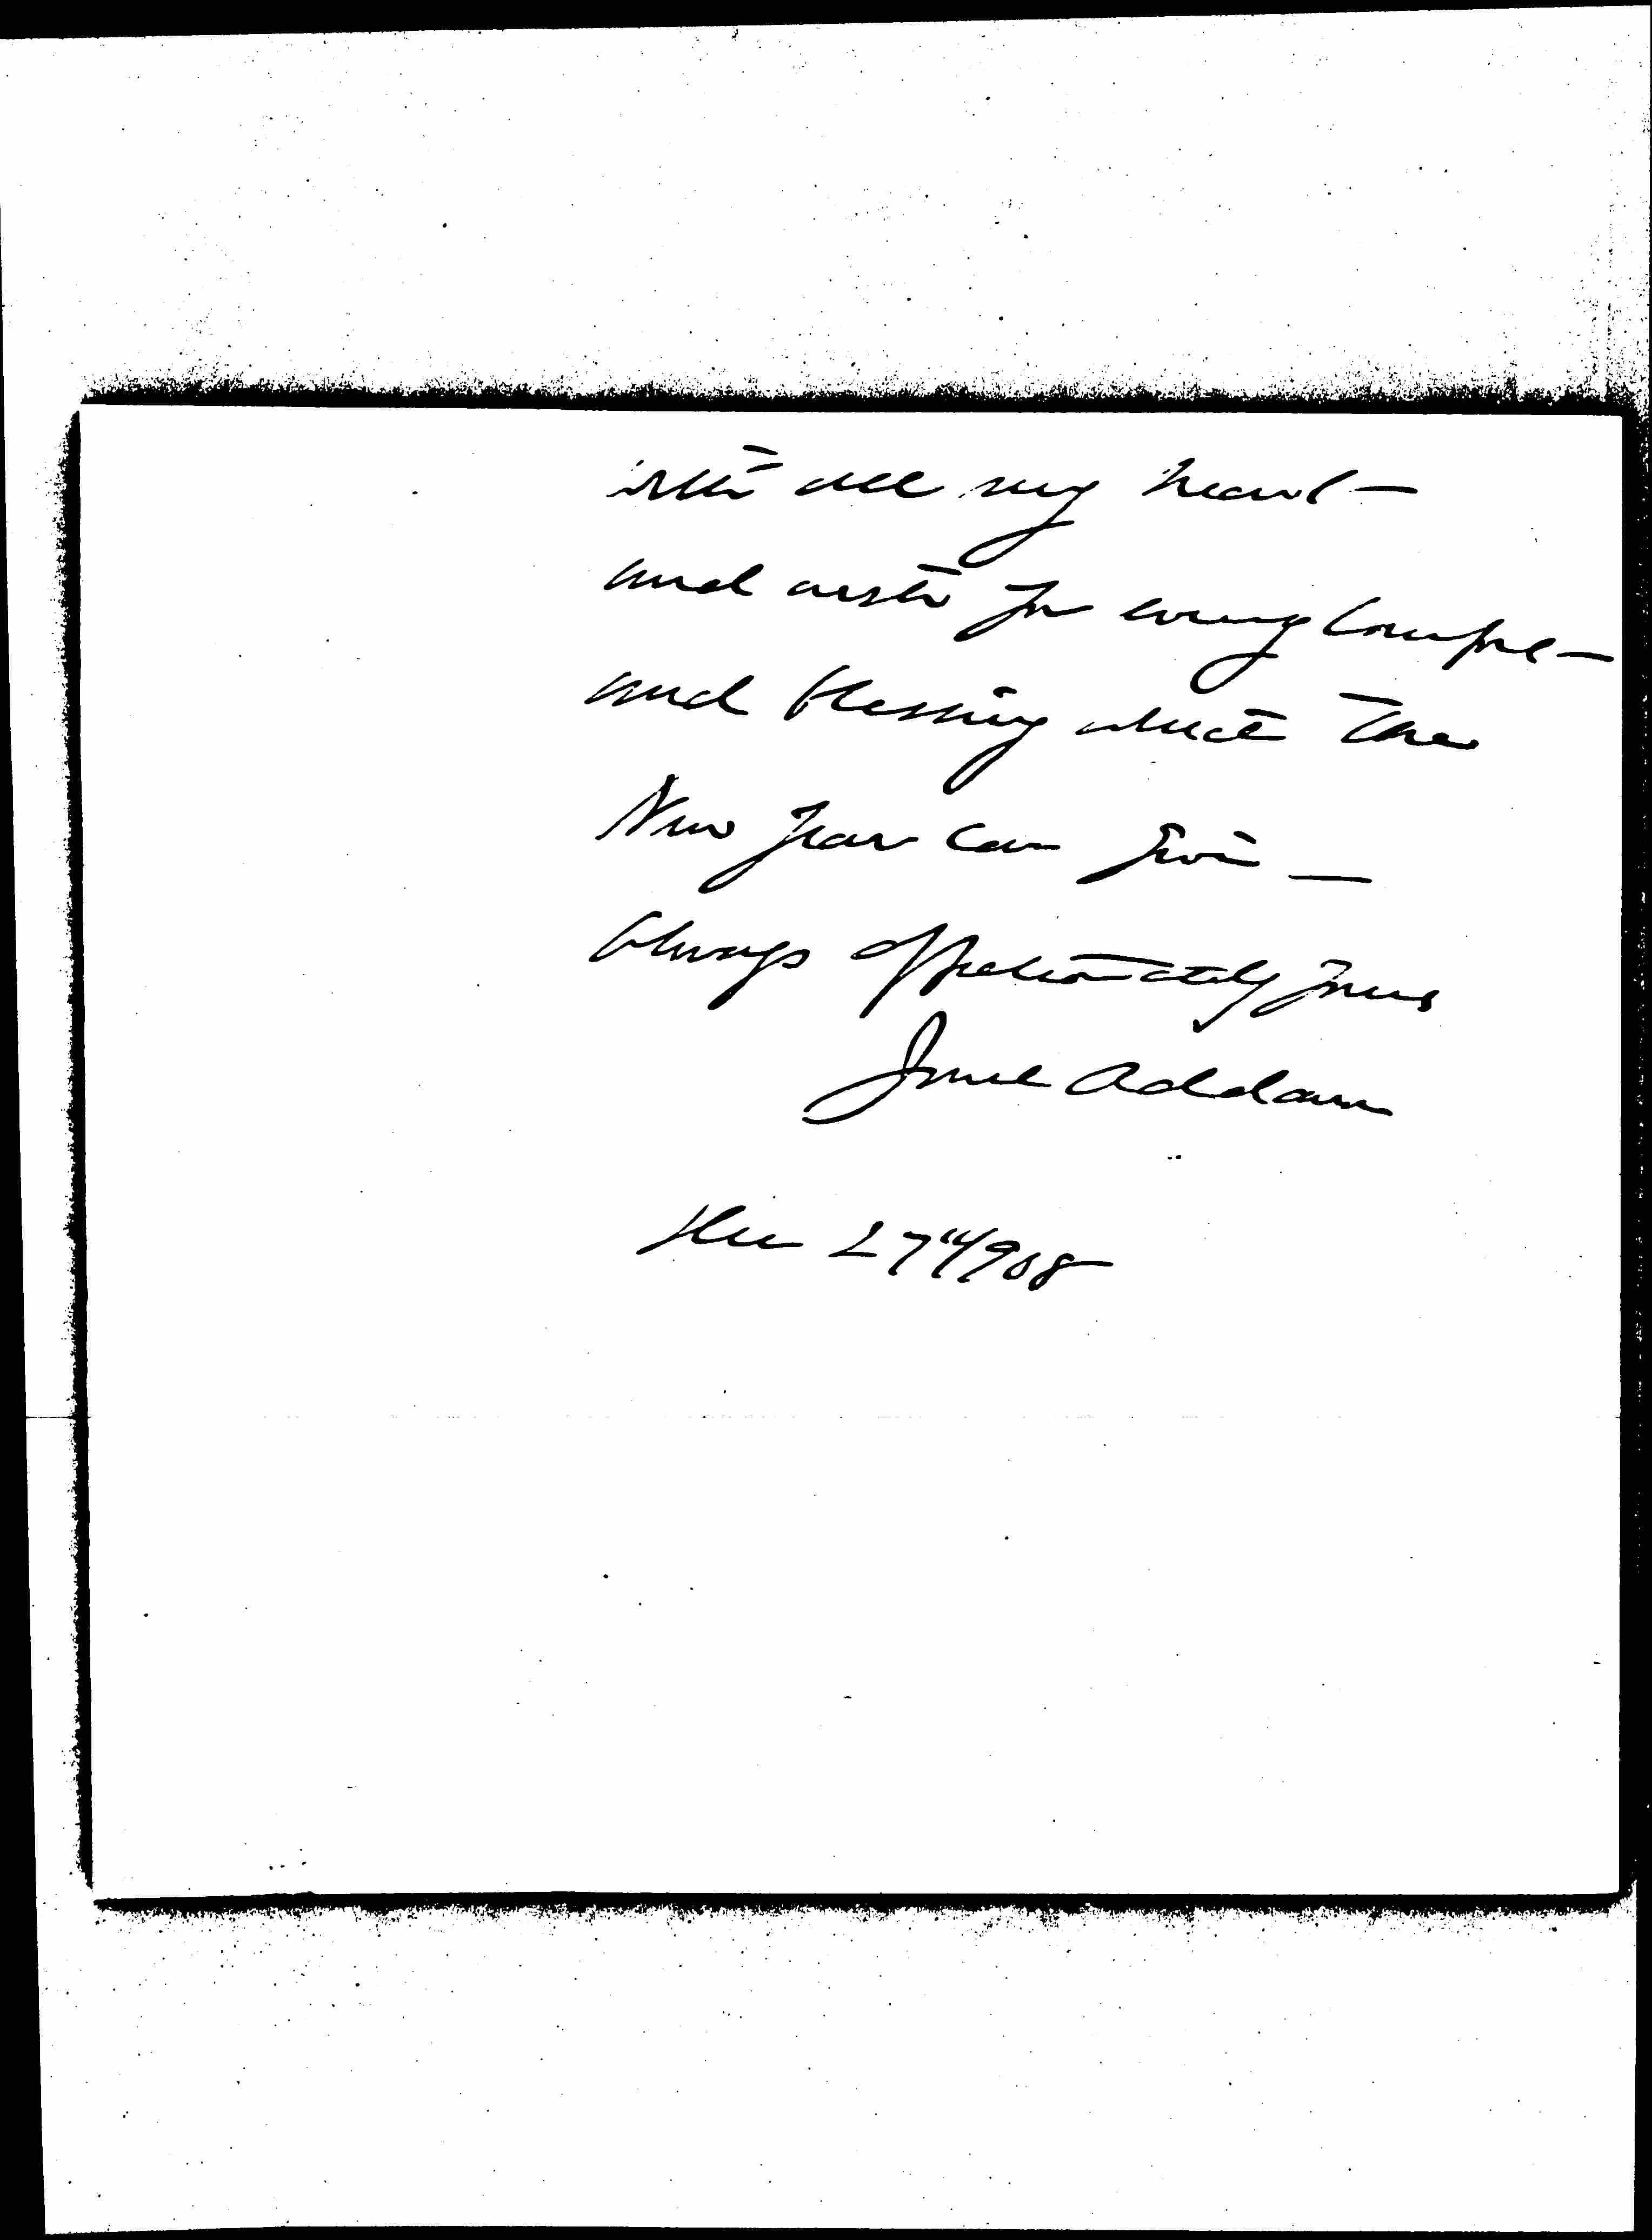 with all my heart
and wish for every comfort
and blessing which the
New Year can give —
Always affectionately yours
Jane Addams
Dec 27" 1908